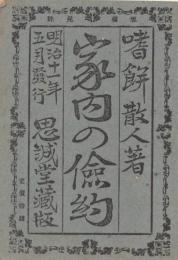 嗜餅散人著
家内の儉約
明治十一年
五月發行
思誠堂藏版